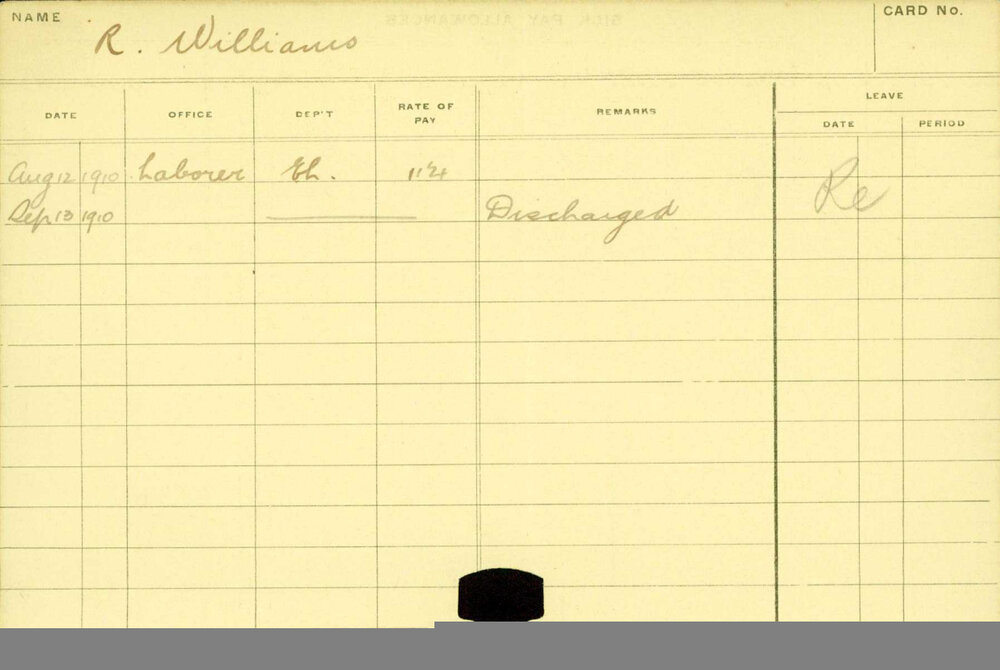 NAME R. Williams CARD No.
DATE OFFICE DEP'T RATE OF PAY REMARKS LEAVE
DATE PERIOD
Aug 12 1910 Laborer Eh.
Sep 13 1910 Discharged
Re